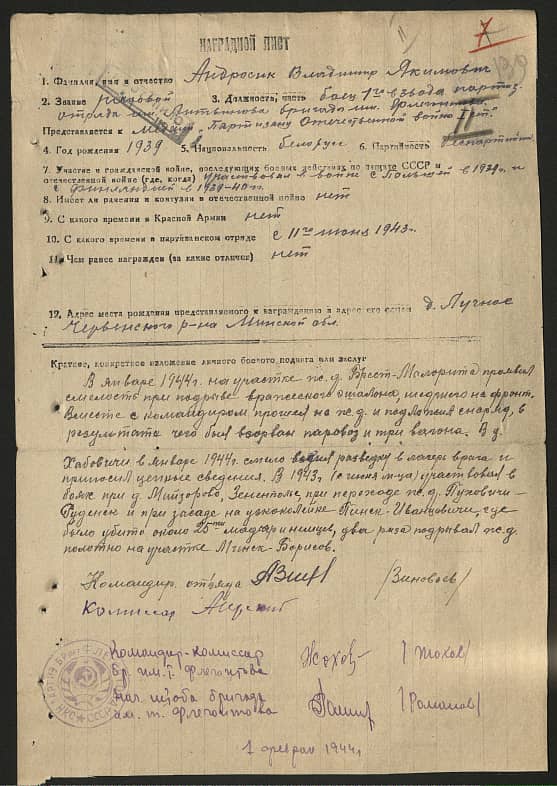 НАГРАДНОЙ ЛИСТ
7
1. Фамилия, имя и отчество Андросик Владимир Якимович
2. Звание рядовой 3. Должность, часть боец 1го взвода партиз.
отряда им. Литвинова бригады им. Флегонтова
Представляется к медали "Партизану Отечественной войны" II ст.
4. Год рождения 1939 5. Национальность беларус 6. Партийность беспартийный
7. Участие в гражданской войне, последующих боевых действиях по защите СССР и
отечественной войне (где, когда) участвовал в войне с Польшей в 1939 г. и
с Финляндией в 1939-40 г.
8. Имеет ли ранения и контузии в отечественной войне нет
9. С какого времени в Красной Армии нет
10. С какого времени в партизанском отряде с 11го июня 1943 г.
11. Чем ранее награжден (за какие отличия) нет
12. Адрес места рождения представляемого к награждению и адрес его семьи д. Лучное
Червенского р-на Минской обл.
Краткое, конкретное изложение личного боевого подвига или заслуг
В январе 1944 г. на участке ж.д. Брест-Малорита проявил
смелость при подрыве вражеского эшалона, шедшего на фронт.
Вместе с командиром прошел на ж.д. и подложил снаряд, в
результате чего был взорван паровоз и три вагона. В д.
Хабовичи в январе 1944 г. смело водил разведку в лагерь врага и
приносил ценные сведения. В 1943 г. (с июня м-ца) участвовал в
боях при д. Майзорово, при переходе ж.д. Пуховичи-
Руденск и при засаде на узкоколейке Пинск-Иванцевичи, где
было убито около 25-ти мадьяр и немцев, два раза подрывал ж.д.
полотно на участке Минск-Борисов.
Командир отряда /Зиновьев/
Комиссар
Командир-комиссар Жохов /Жохов/
Бр. им. т. Флегонтова
Нач. штаба бригады /Романов/
им. т. Флегонтова
1 февраля 1944 г.